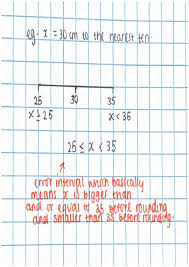 eg. x = 30cm to the nearest ten.
25 30 35
x ≥ 25 x < 35
25 ≤ x < 35
error interval which basically
means x is bigger than
and or equal to 35 before rounding
and smaller than 35 before rounding.